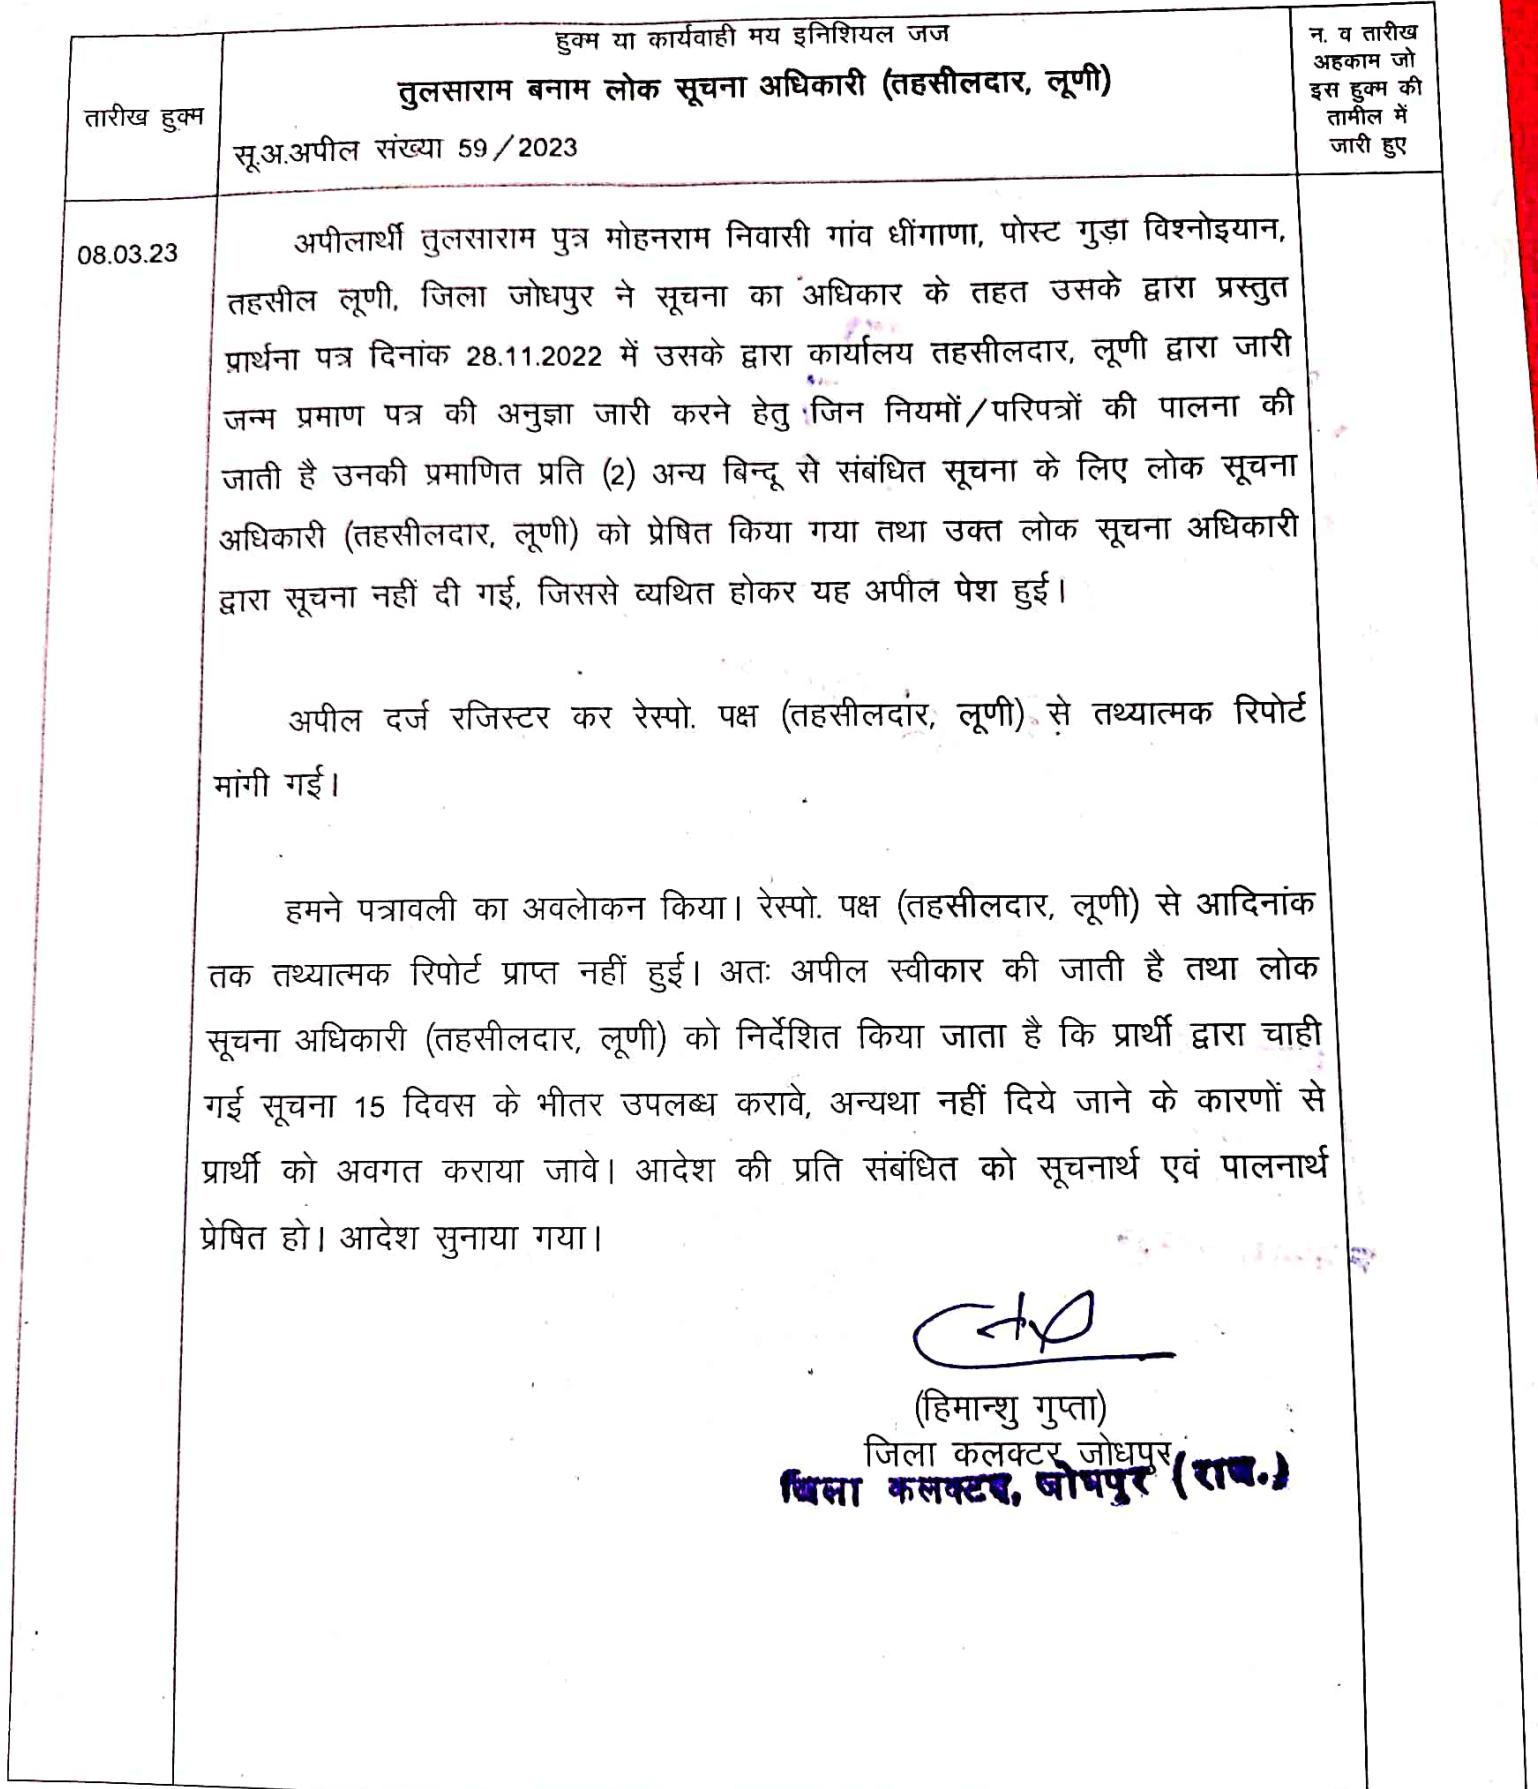 हुक्म या कार्यवाही मय इनिशियल जज
तुलसाराम बनाम लोक सूचना अधिकारी (तहसीलदार, लूणी)
सू.अ.अपील संख्या 59/2023
तारीख हुक्म
न. व तारीख
अहकाम जो
इस हुक्म की
तामील में
जारी हुए
08.03.23
अपीलार्थी तुलसाराम पुत्र मोहनराम निवासी गांव धींगाणा, पोस्ट गुड़ा विश्नोइयान,
तहसील लूणी, जिला जोधपुर ने सूचना का अधिकार के तहत उसके द्वारा प्रस्तुत
प्रार्थना पत्र दिनांक 28.11.2022 में उसके द्वारा कार्यालय तहसीलदार, लूणी द्वारा जारी
जन्म प्रमाण पत्र की अनुज्ञा जारी करने हेतु जिन नियमों/परिपत्रों की पालना की
जाती है उनकी प्रमाणित प्रति (2) अन्य बिन्दू से संबंधित सूचना के लिए लोक सूचना
अधिकारी (तहसीलदार, लूणी) को प्रेषित किया गया तथा उक्त लोक सूचना अधिकारी
द्वारा सूचना नहीं दी गई, जिससे व्यथित होकर यह अपील पेश हुई।
अपील दर्ज रजिस्टर कर रेस्पो. पक्ष (तहसीलदार, लूणी) से तथ्यात्मक रिपोर्ट
मांगी गई।
हमने पत्रावली का अवलोकन किया। रेस्पो. पक्ष (तहसीलदार, लूणी) से आदिनांक
तक तथ्यात्मक रिपोर्ट प्राप्त नहीं हुई। अतः अपील स्वीकार की जाती है तथा लोक
सूचना अधिकारी (तहसीलदार, लूणी) को निर्देशित किया जाता है कि प्रार्थी द्वारा चाही
गई सूचना 15 दिवस के भीतर उपलब्ध करावे, अन्यथा नहीं दिये जाने के कारणों से
प्रार्थी को अवगत कराया जावे। आदेश की प्रति संबंधित को सूचनार्थ एवं पालनार्थ
प्रेषित हो। आदेश सुनाया गया।
(हिमान्शु गुप्ता)
जिला कलक्टर, जोधपुर
जिला कलक्टर, जोधपुर (राज.)